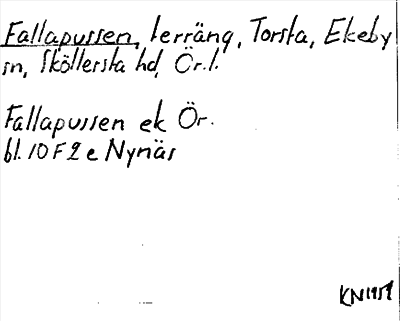 Fallapussen, terräng, Torsta, Ekeby
sn, Sköllersta hd, Ör.l.
Fallapussen ek Ör.
bl. 10 F 2 e Nynäs
KN 1959